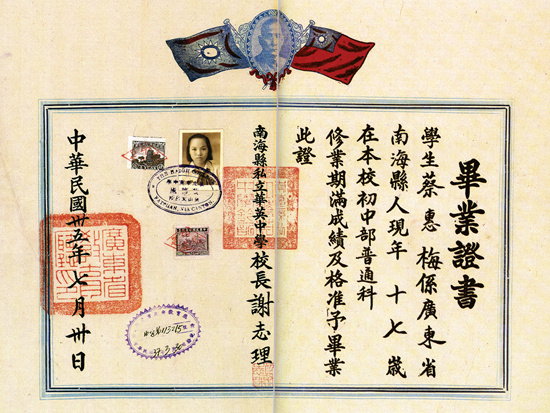 畢業證書
學生蔡惠梅係廣東省
南海縣人現年十七歲
在本校初中部普通科
修業期滿成績及格准予畢業
此證
南海縣私立華英中學校長謝志理
中華民國卅五年七月卅日
FATSHAN, VIA CANTON
廣東省